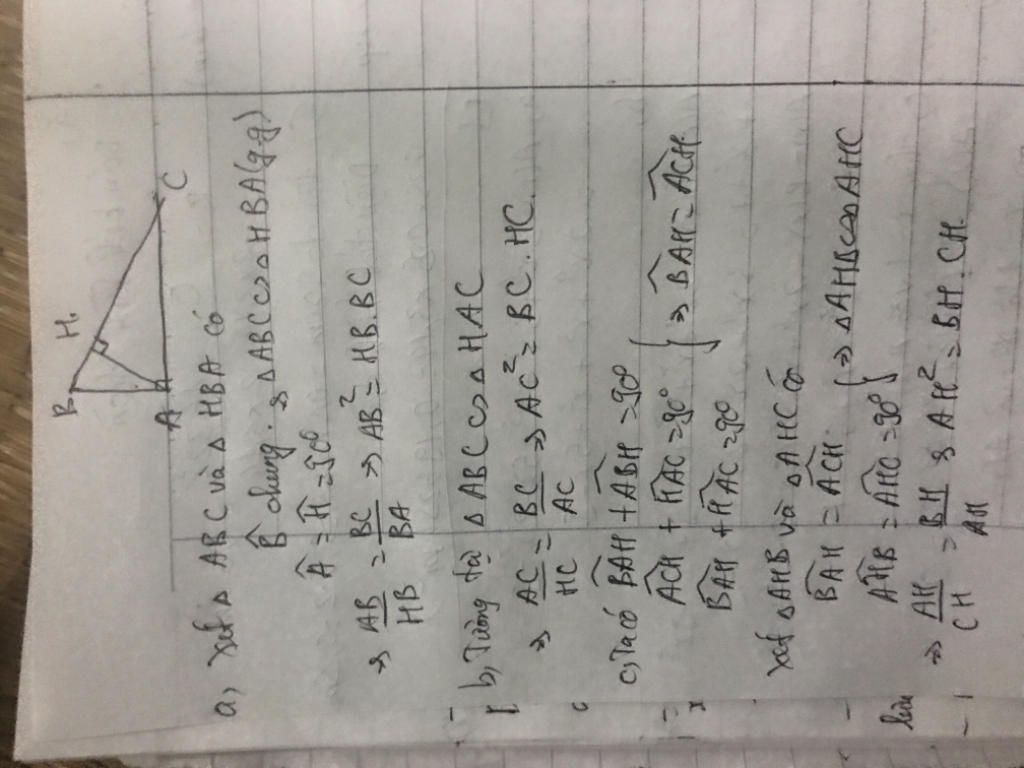 B
H
A
C
a, Xét Δ ABC và Δ HBA có
B̂ chung. → Δ ABC ∽ Δ HBA (g.g)
Â = Ĥ = 90°
→ AB/HB = BC/BA → AB² = HB.BC
b, Tương tự Δ ABC ∽ Δ HAC
→ AC/HC = BC/AC → AC² = BC.HC.
c, Ta có BAĤ + ABĤ = 90°
ACĤ + HAĈ = 90° } → BAĤ = ACĤ.
BAĤ + HAĈ = 90°
Xét Δ AHB và Δ AHC có
BAĤ = ACĤ.
AHB̂ = AHĈ = 90° } → Δ AHB ∽ Δ AHC
→ AH/CH = BH/AH → AH² = BH.CH.